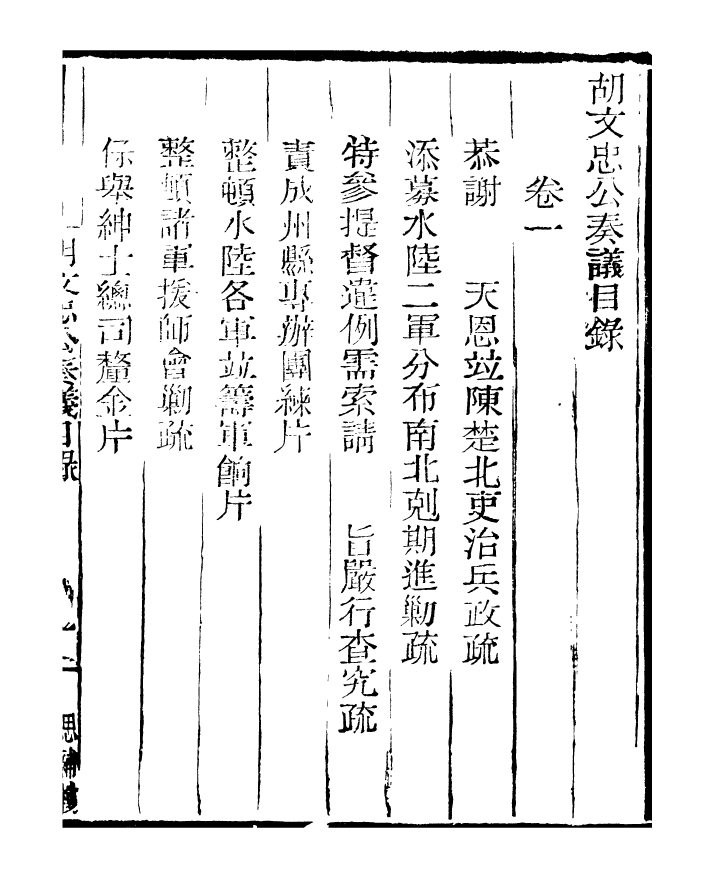 胡文忠公奏議目錄
卷一
恭謝　天恩竝陳楚北吏治兵政疏
添募水陸二軍分布南北剋期進勦疏
特參提督違例需索請　旨嚴行查究疏
責成州縣專辦團練片
整頓水陸各軍竝籌軍餉片
整頓諸軍援師會勦疏
保舉紳士總司釐金片
胡文忠公奏議目錄
思補樓